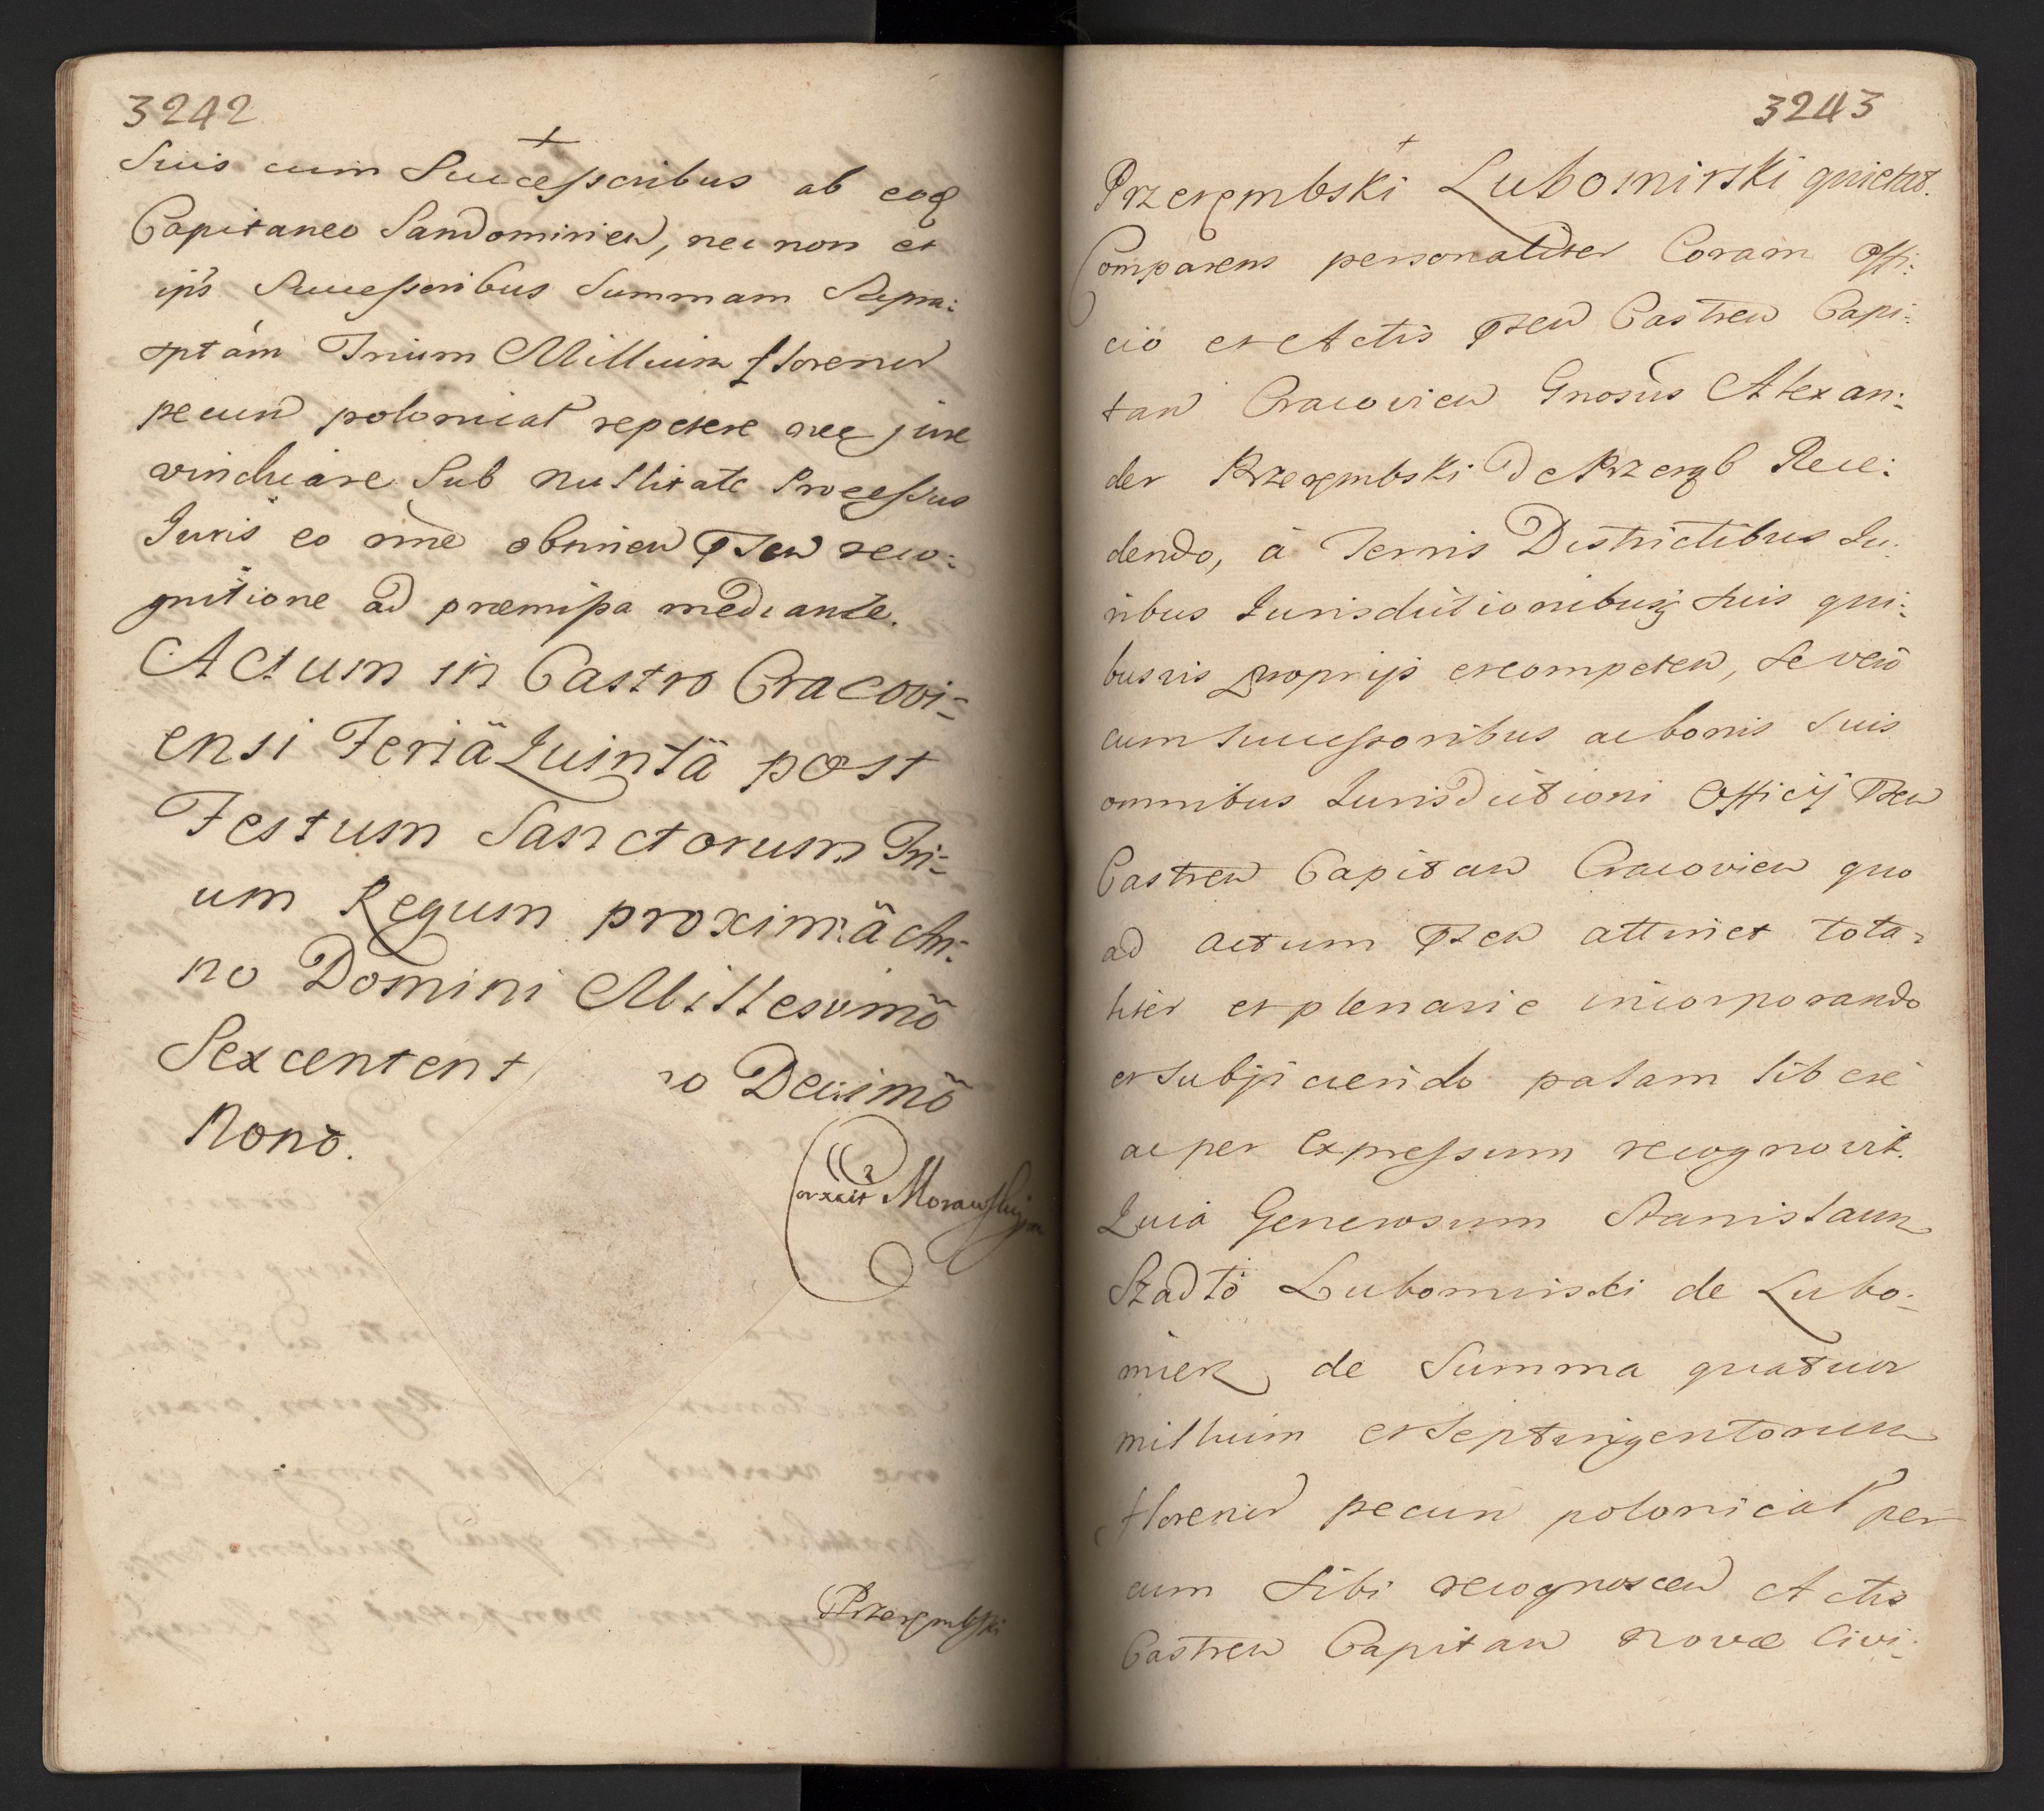 3242
Suis cum Successoribus ab eoq
Capitaneo Sandomirien, nec non et
ips Successoribus Summam Supra:
sptám Trium Millium florenor
pecun polonical repetere neq jure
vindicare Sub nullitate Processus
Iuris eo nne obmien pnten reco:
gnitione ad præmissa mediante.
Actum in Castro Cracovi=
ensi Feriä Quintä post
Festum Sanctorum Tri=
um Regum proximä An:
no Domini Millesimö
Sexcentent no Decimö
Nonö.
Morawskj
Przerembski
3243
Przerembski Lubomirski quietat.
Comparens personaliter Coram Offi:
cio et Actis pnten Castren Capi:
tan Cracovien Gnosus Alexan:
der Przerembski de Przeręb Rece:
dendo, à Terris Districtibus Iu:
ribus Iurisdictionibusq Suis qui:
busvis proprijs et competen, Se vero
cum Successoribus ac bonis Suis
omnibus Iurisdictioni Officij pnten
Castren Capitan Cracovien quo
ad actum pnten attinet tota=
liter et plenarie incorporando
et Subjiciendo palam libere
ac per Expressum recognovit.
Quia Generosum Stanislaum
Szadlo Lubomirski de Lubo=
mierz de Summa quatuor
millium et Septuingentorum
florenor pecun polonical per
eum Sibi recognoscen Actis
Castren Capitan Novæ Civi=